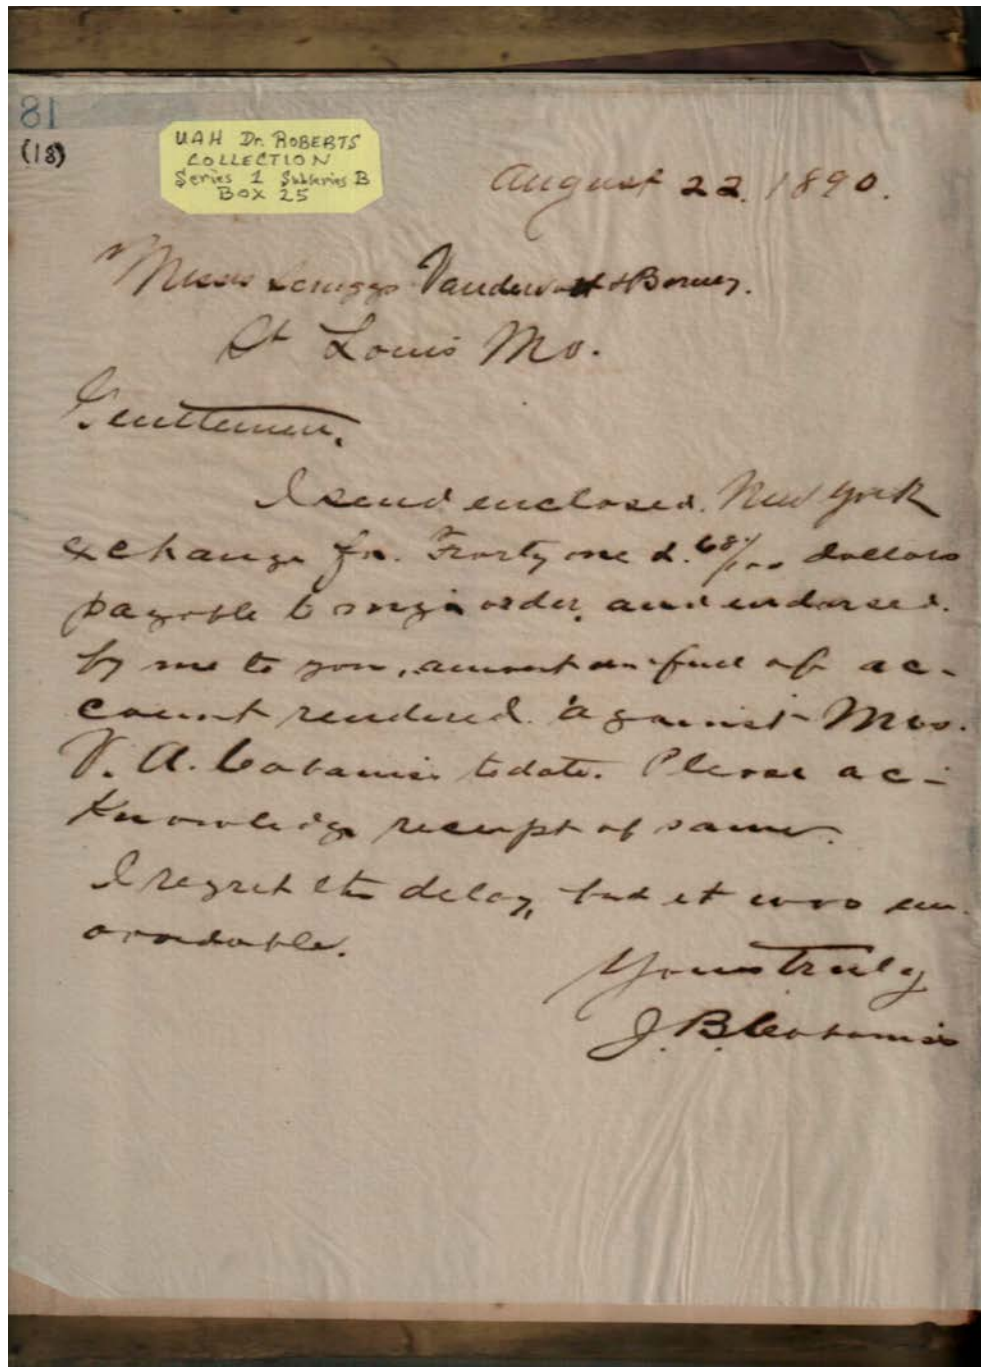 18
(18)
UAH Dr. ROBERTS
COLLECTION
Series 1 Subseries B
Box 25
August 22. 1890.
Messrs Scruggs Vandervoort & Barney.
St Louis Mo.
Gentlemen.
I send enclosed. New York
exchange for. Forty one &. 68/100 dollars
payable to my order, and endorsed.
by me to you, amount in full of ac-
count rendered against Mrs.
V. A. Cabaniss to date. Please ac-
knowledge receipt of same.
I regret the delay, but it was un-
avoidable.
Yours truly
J. B. Cabaniss